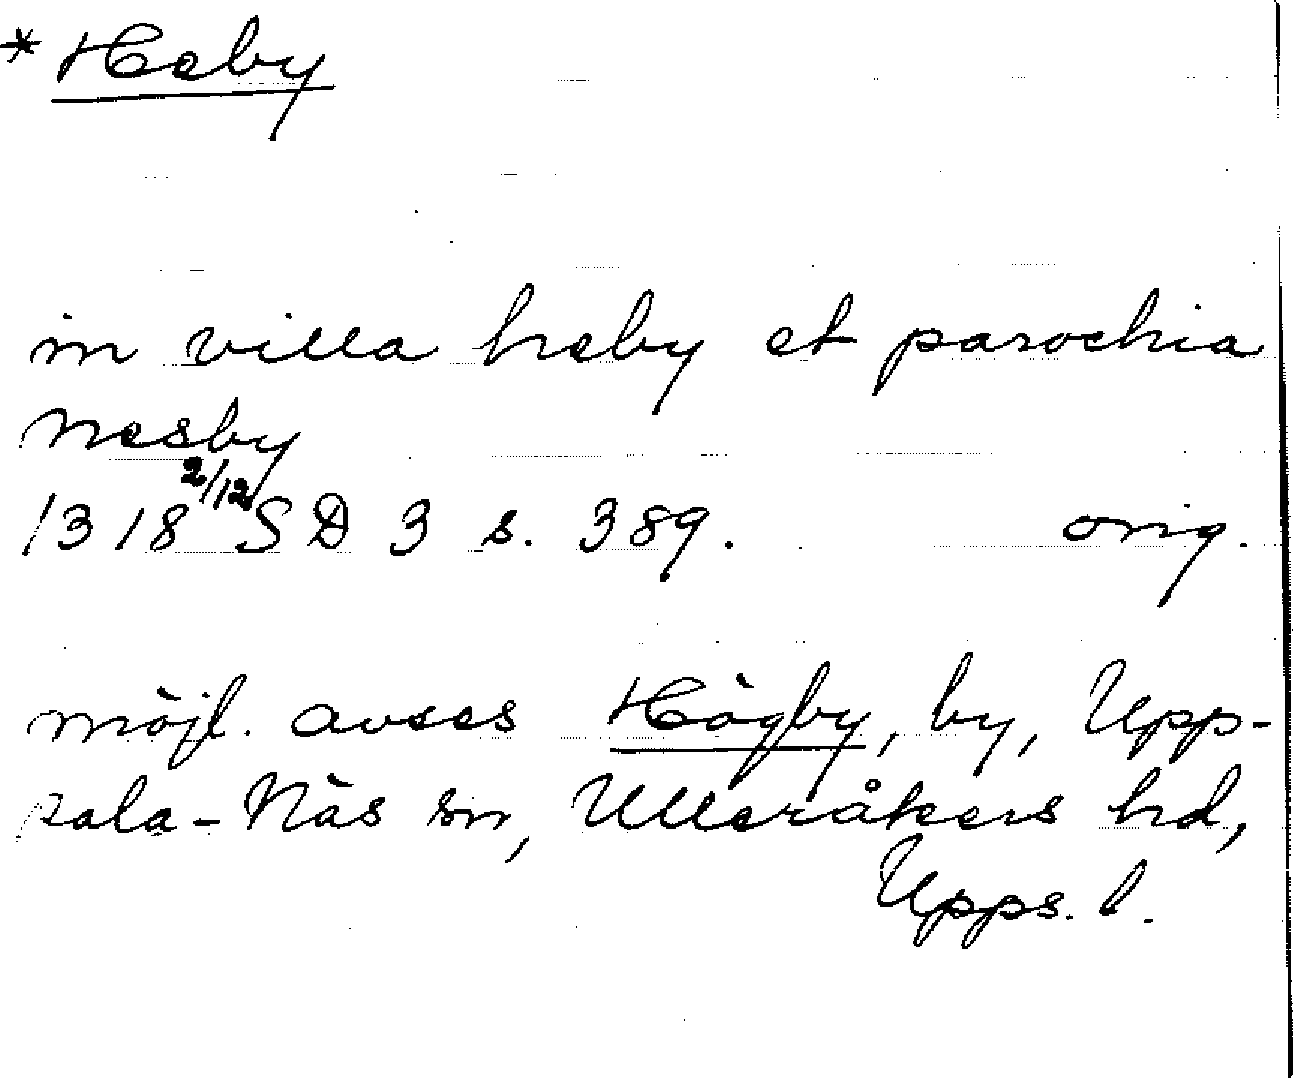 * Heby
in villa heby et parochia
Nesby
1318 2/12 SD 3 s. 389. orig.
möjl. avses Högby, by, Upp-
sala-Näs sn, Ulleråkers hd,
Upps. l.